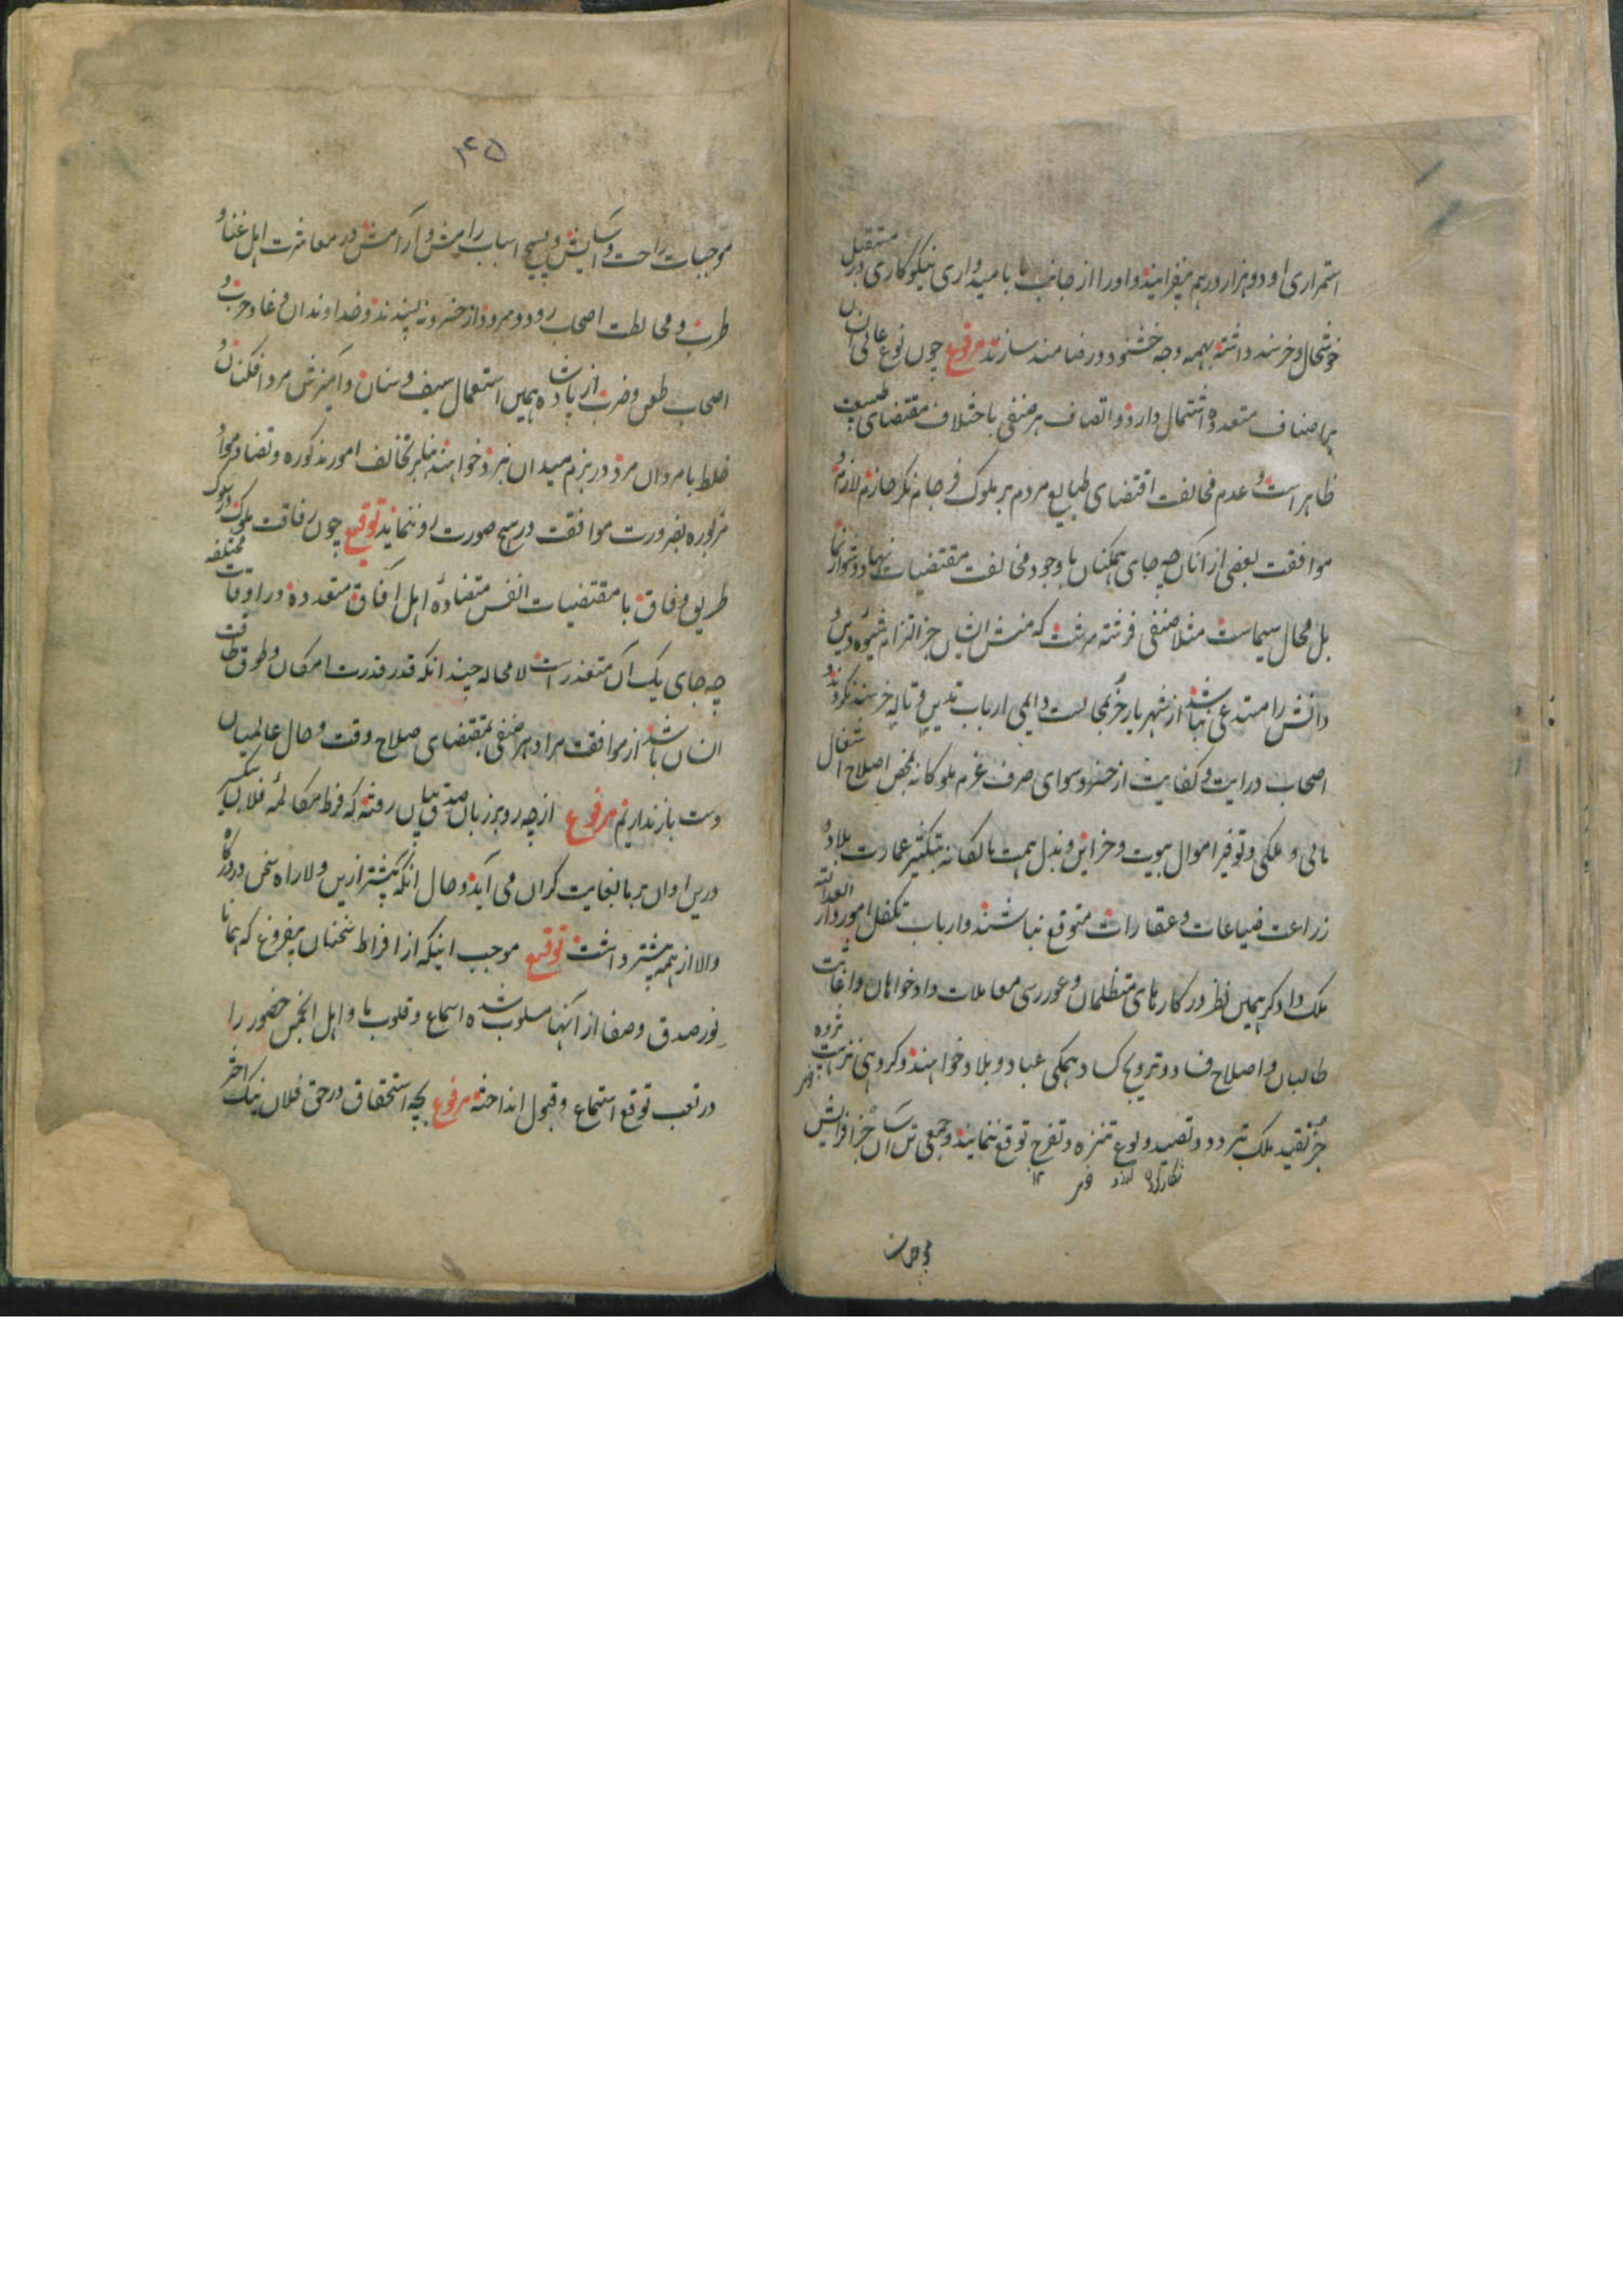 استمراری او دو هزار درهم بیفزایند و او را از جانب ما بامیدواری نیکوکاری در مستقبل
خوشحال و خرسند داشته بهمه وجه خشنود و رضامند سازند مرفوع چون نوع عالی انسان
بر اصناف متعدده اشتمال دارد و اتصاف هر صنفی باختلاف مقتضای طبیعت
ظاهر است و عدم مخالفت اقتضای طبایع مردم بر ملوک
موافقت بعضی از انان چه جای همکنان با وجود مخالفت مقتضیات
بل محال سیماست مثلا صنفی فرشته سرشت که منش ایشان جز التزام شیوه دین و
دانش را مستدعی نباشد از شهریار جز مجالست دایمی ارباب تدین و تاله خرسند نگردند و
اصحاب درایت و کفایت از خسرو سوای صرف عزم ملوکانه بمحض اصلاح اشغال
مالی و ملکی و توفیر اموال بیوت و خزاین و بذل همت مالکانه بتکثیر عمارت بلاد و
زراعت ضیاعات و عقارات متوقع نباشند و ارباب تکفل امور دار العدالته
ملک دادگر همین نظر در کارهای متظلمان و غوررسی معاملات دادخواهان و اغاثت
طالبان و اصلاح فساد و ترویج کساد همگی عباد و بلاد خواهند و گروهی
جز تقید ملک بتردد و تصید و لوع تنزه و تفرج توقع ننمایند و جمعی تن آسان جز افزایش
موجبات
۱۴۵
موجبات راحت و آسایش و بسیج اسباب رامش و آرامش در معاشرت اهل غنا و
طرب و مخالطت اصحاب رود و سرود از خسرو نه پسندند و خداوندان وغا و حرب و
اصحاب طعن و ضرب از پادشاه همین استعمال سیف و سنان و آمیزش مردافکنان و
خلط با مردان مرد در بزم میدان نبرد خواهند بنابر تخالف امور مذکوره و تضاد مواد
مزبوره بضرورت موافقت در هیچ صورت رو ننماید توقیع چون رفاقت ملوک در سلوک
طریق وفاق با مقتضیات انفس متضاده اهل آفاق متعدده در اوقات مختلفه
چه جای یک آن متعذر است لامحاله چندانکه قدر قدرت امکان و طوق طاقت
انسان باشد از موافقت مراد هر صنفی بمقتضای صلاح وقت و حال عالمیان
دست باز نداریم مرفوع از چه رو بر زبان صدق بیان رفته که فرط مکالمه فلان
درین اوان بر ما بغایت گران می آید و حال آنکه پیشتر ازین ولا راه سخن در درگاه
والا از همه بیشتر داشت توقیع موجب اینکه از افراط سخنان بیفروغ که همانا
نور صدق و صفا از آنها مسلوب شده اسماع و قلوب ما و اهل انجمن حضور را
در تعب توقع استماع و قبول انداخته مرفوع بچه استحقاق در حق فلان نیک اختر